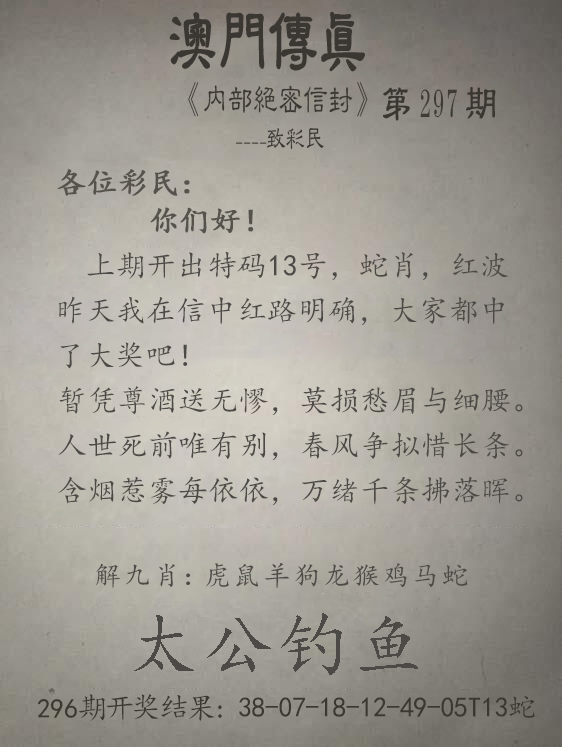 澳門傳眞
《内部絕密信封》第297期
----致彩民
各位彩民：
你们好！
上期开出特码13号，蛇肖，红波
昨天我在信中红路明确，大家都中
了大奖吧！
暂凭尊酒送无憀，莫损愁眉与细腰。
人世死前唯有别，春风争拟惜长条。
含烟惹雾每依依，万绪千条拂落晖。
解九肖：虎鼠羊狗龙猴鸡马蛇
太公钓鱼
296期开奖结果：38-07-18-12-49-05T13蛇